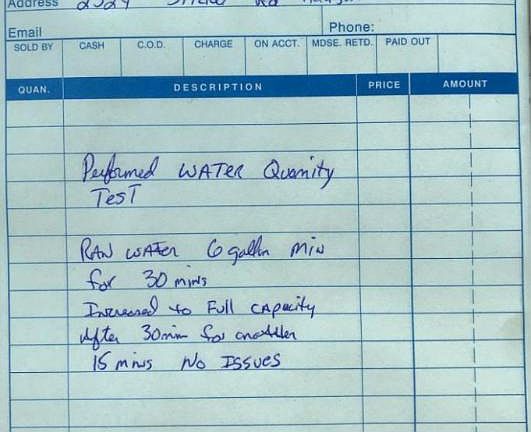 Address 2329 Rd
Email Phone:
SOLD BY CASH C.O.D. CHARGE ON ACCT. MDSE. RETD. PAID OUT
QUAN. DESCRIPTION PRICE AMOUNT
Performed WATER Quanity
TEST
RAN WATER 6 gallon min
for 30 mins
Increased to Full CAPACITY
After 30 min for another
15 mins No ISSUES